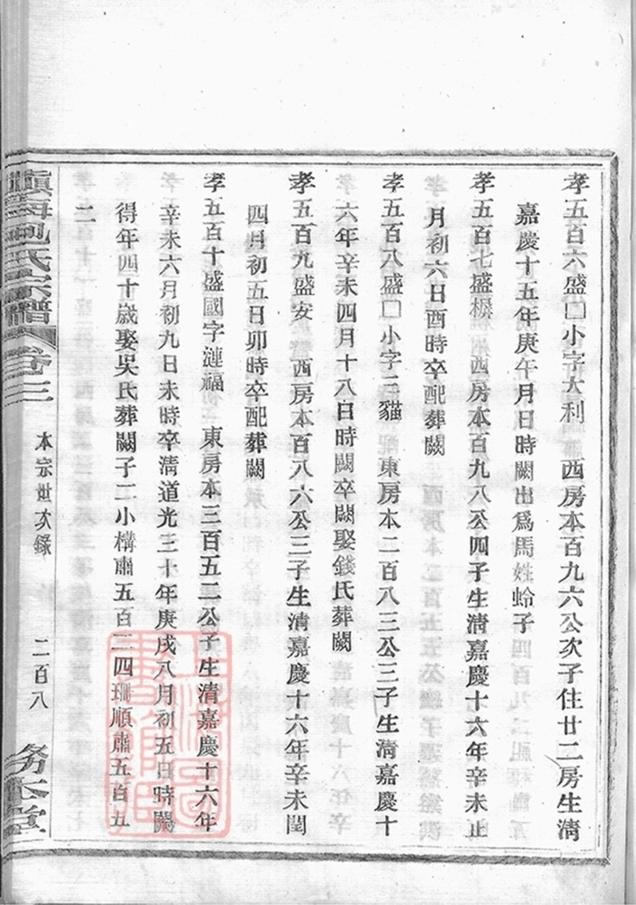 孝五百六盛□小字大利　西房本百九六公次子住廿二房生清
嘉慶十五年庚午月日時闕出爲馬姓蛉子
孝五百七盛櫸　西房本百九八公四子生清嘉慶十六年辛未正
月初六日酉時卒配葬闕
孝五百八盛□小字三貓　東房本二百八三公三子生清嘉慶十
六年辛未四月十八日時闕卒闕娶錢氏葬闕
孝五百九盛安　西房本百八六公三子生清嘉慶十六年辛未閏
四月初五日卯時卒配葬闕
孝五百十盛國字漣福　東房本三百五二公子生清嘉慶十六年
辛未六月初九日未時卒清道光三十年庚戌八月初五日時闕
得年四十歲娶吳氏葬闕子二小構肅五百二四珊順肅五百五
二
鎮海包氏宗譜　卷三　本宗世次錄　二百八　務本堂